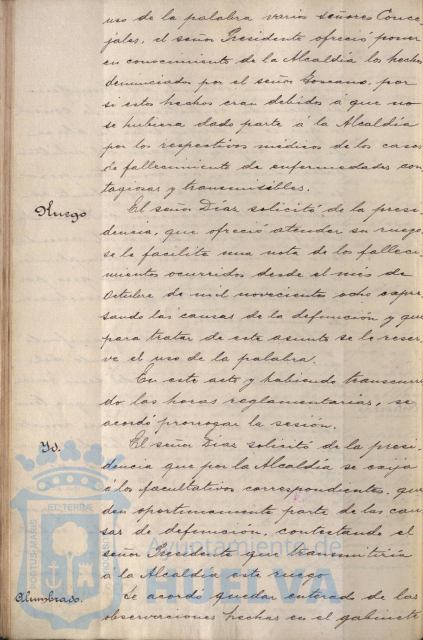 uso de la palabra varios señores Conce-
jales, el señor Presidente ofreció poner
en conocimiento de la Alcaldía los hechos
denunciados por el señor por
si estos hechos eran debidos á que no
se hubiera dado parte á la Alcaldía
por los respectivos médicos de los casos
de fallecimiento de enfermedades con-
tagiosas y transmisibles.
Ruego
El señor Díaz solicitó de la presi-
dencia, que ofreció atender su ruego
se le facilite una nota de los falleci-
mientos ocurridos desde el mes de
Octubre de mil novecientos ocho expre-
sando las causas de la defunción y que
para tratar de este asunto se le reser-
ve el uso de la palabra.
En este acto y habiendo transcurri-
do las horas reglamentarias, se
acordó prorrogar la sesión.
Yd.
El señor Díaz solicitó de la presi-
dencia que por la Alcaldía se exija
á los facultativos correspondientes, que
den oportunamente parte de las cau-
sas de defunción, contestando el
señor Presidente que transmitiría
á la Alcaldía este ruego.
Alumbrado.
Se acordó quedar enterado de las
observaciones hechas en el gabinete
PORTUS MARIS
ET TERRAE
Ayuntamiento de
HUELVA